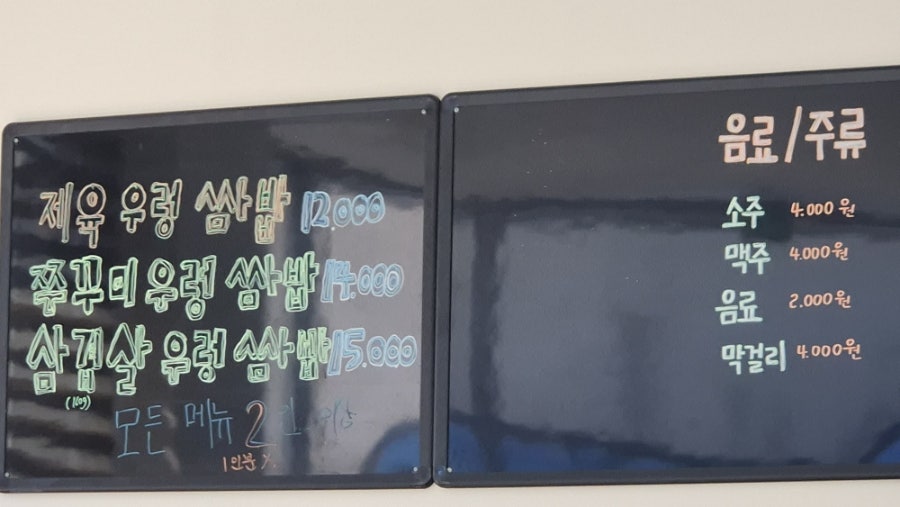 제육 우렁 쌈밥 12.000
쭈꾸미 우렁 쌈밥 14.000
삼겹살 우렁 쌈밥 15.000
(160g)
모든 메뉴 2인 이상
1인분 X.
음료/주류
소주 4.000원
맥주 4.000원
음료 2.000원
막걸리 4.000원